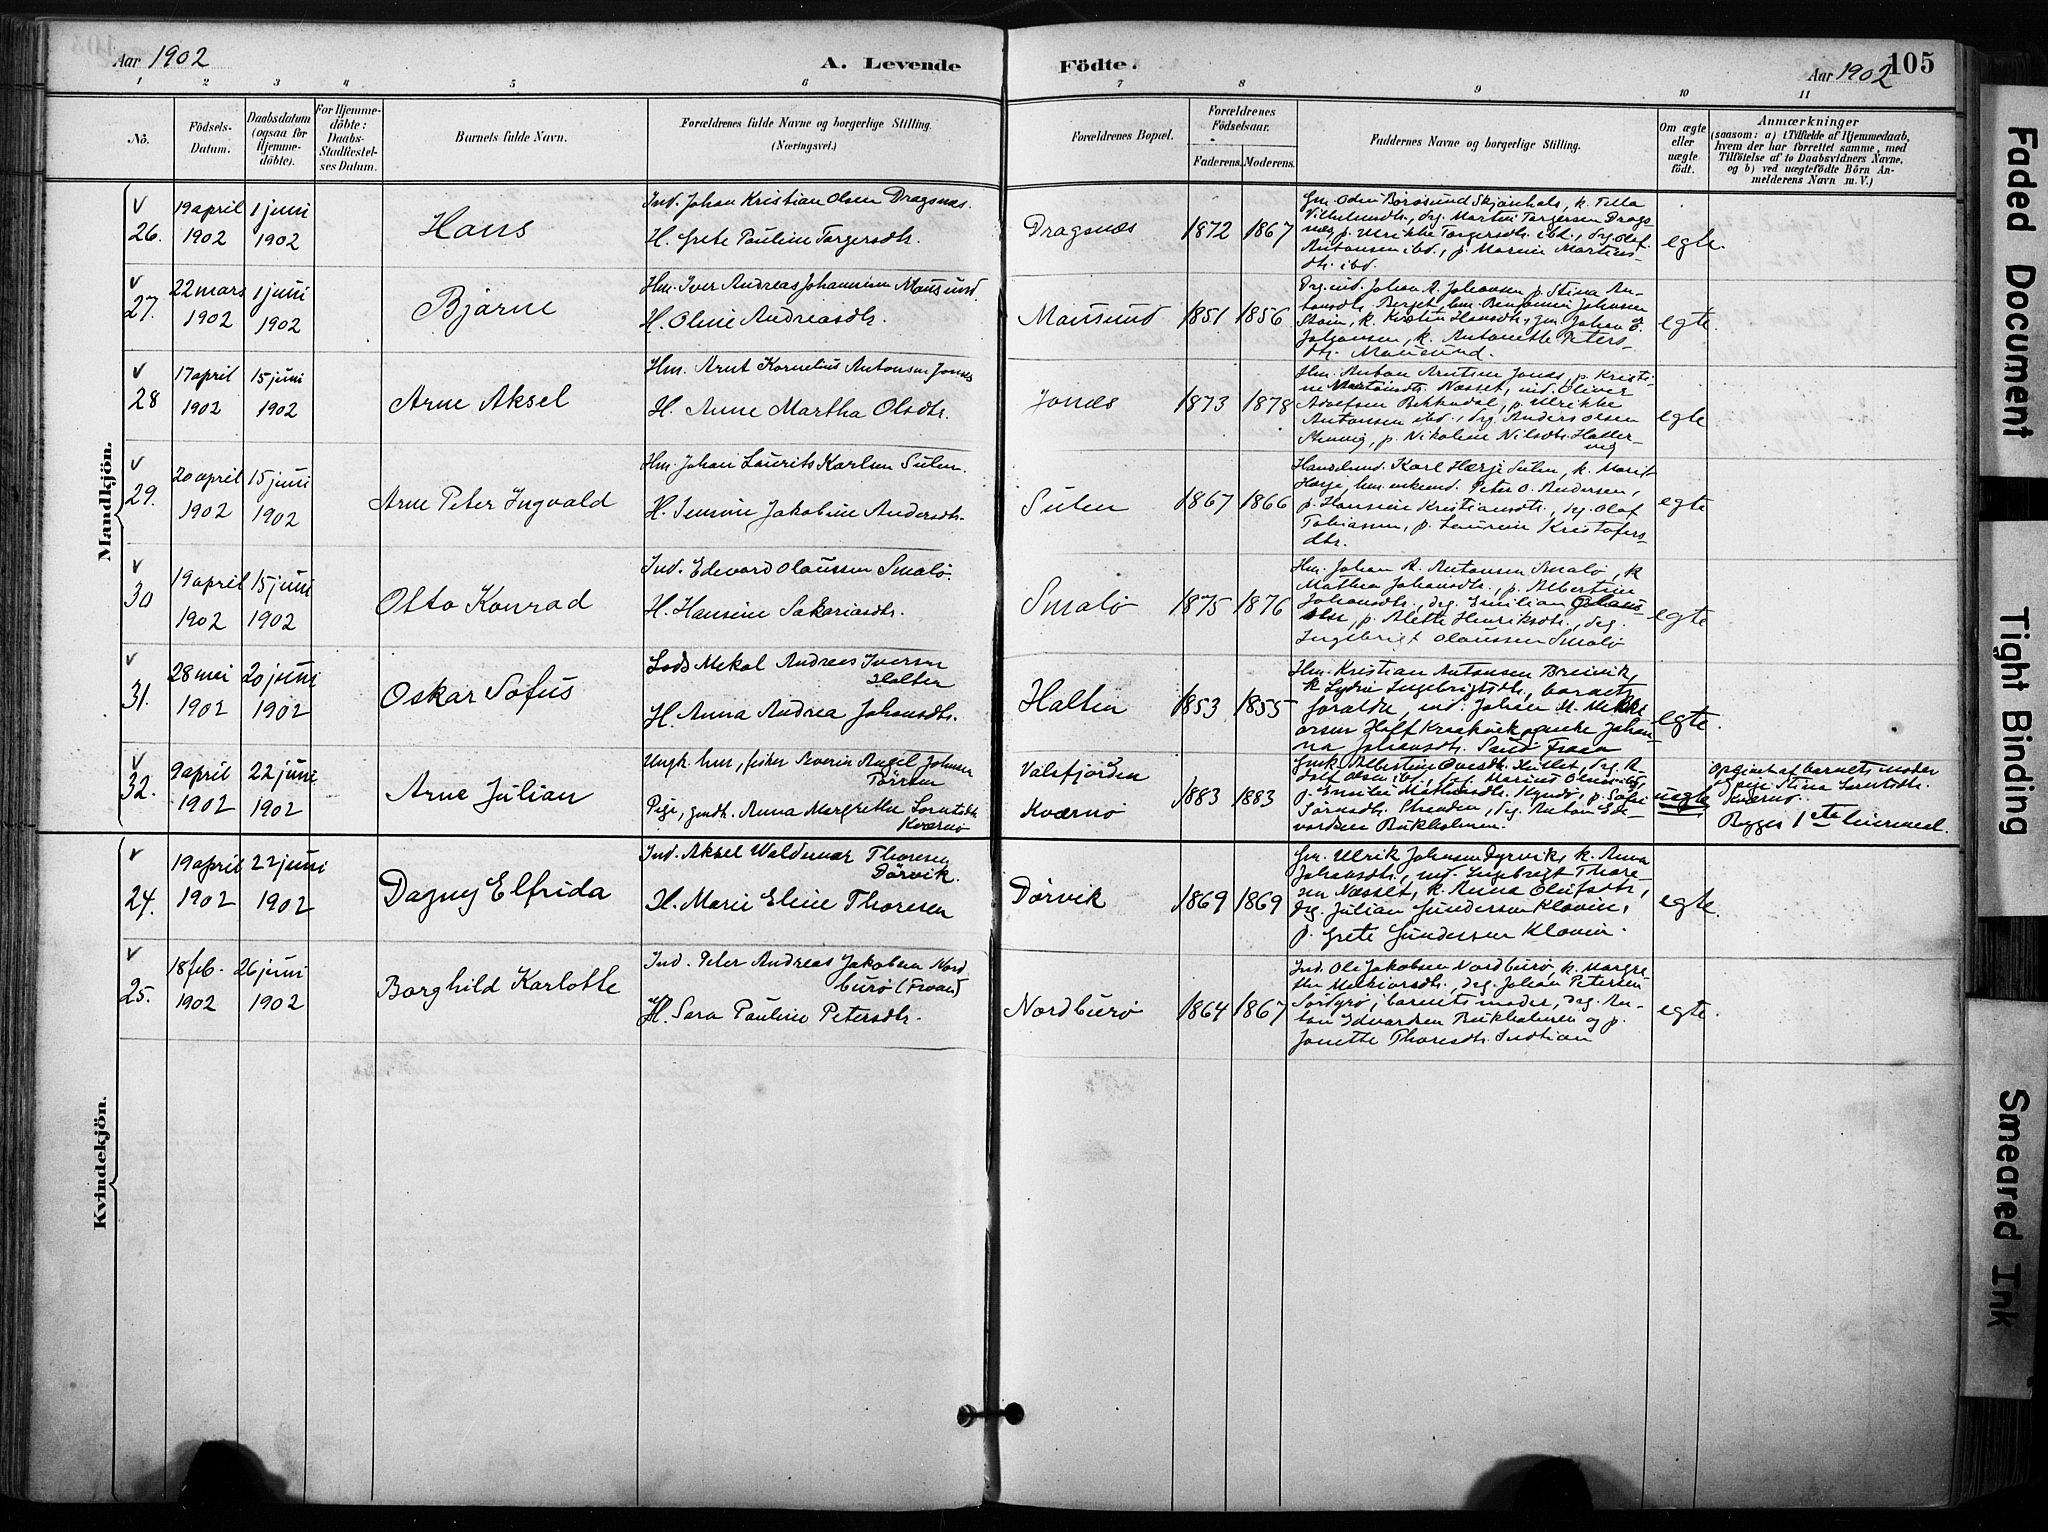 Aar 1902
A. Levende
Födte.
Aar 1902
105
1 2 3 4 5 6 7 8 9 10 11
No.
Födsels-Datum.
Daabsdatum (ogsaa for Hjemme-döbte).
For Hjemme-döbte: Daabs-Stadfæstel-ses Datum.
Barnets fulde Navn.
Forældrenes fulde Navne og borgerlige Stilling. (Næringsvei.)
Forældrenes Bopæl.
Forældrenes Födselsaar.
Faderens. Moderens.
Faddernes Navne og borgerlige Stilling.
Om ægte eller uægte födt.
Anmærkninger
(saasom: a) i Tilfælde af Hjemmedaab, hvem der har forrettet samme, med Tilföielse af to Daabsvidners Navne, og b) ved uægtefödte Börn Anmelderens Navn m. V.)
Mandkjön.
26. 19 april 1902
1 juni 1902
Hans
Ind. Johan Kristian Olsen Dragsnæs.
H. Grete Pauline Torgersdtr.
Dragsnæs
1872 1867
Martin Torgersen Drags-
næs p. Ulrikke Torgersdtr. ibd., drg. Olaf
Antonsen ibd., p. Marnie Martins-
dtr. ibd.
egte.
27. 22 mars 1902
1 juni 1902
Bjarne
Hm. Iver Andreas Johannsen Mausund.
H. Oline Andreasdtr.
Mausund
1851 1856
Drg. ind. Johan A. Johansen, p. Stina An-
tonsdtr. Berget, hm. Benjamin Johansen
Stein, k. Kirstin Hansdtr., gm. Johan O.
Johansen, k. Antonette Peters-
dtr. Mausund.
egte.
28 17 april 1902
15 juni 1902
Arne Aksel
Hm. Arnt Kornelius Antonsen Jonæs
H. Anne Martha Olsdtr.
Jonæs
1873 1878
Hm. Anton Arntsen Jonæs, p. Kristi-
Næsset, ind. Oliver
Adolfsen Bekkadal, p. Ulrikke
Antonsen ibd., drg. Anders Olsen
p. Nikoline Nilsdtr. Hatler-
vig
egte
29. 20 april 1902
15 juni 1902
Arne Peter Ingvald
Hm. Johan Laurits Karlsen Sulen.
H. Jensine Jakobine Andersdtr.
Sulen
1867 1866
Handelsmd. Karl Hærje Sulen, k. Marit
Hærje, hm. enkemd. Peter O. Andersen,
p. Hansine Kristiansdtr., drg. Olaf
Tobiassen, p. Laurine Kristofers-
dtr.
egte
30 19 april 1902
15 juni 1902
Otto Konrad
Ind. Edevard Olaussen Smalö.
H. Hansine Sakariasdtr.
Smalö
1875 1876
Hm. Johan A. Antonsen Smalö, k.
Mathea Johansdtr., p. Albertine
Johansdtr., drg. Emilian Johans-
sen, p. Alette Henriksdtr., drg.
Ingebrigt Olaussen Smalö
egte
31. 28 mei 1902
20 juni 1902
Oskar Sofus
Lods Mekal Andreas Iversen
Halten
H. Anna Andrea Johansdtr.
Halten
1853 1855
Hm. Kristian Antonsen Breivik,
k. Lydie Ingebrigtsdtr., barnets
foraldre, ind. Johan M.
Johan-
na Johansdtr.
egte.
32. 9 april 1902
22 juni 1902
Arne Julian
Ungk. hm., fisker Severin Angel Johnsen
Törrem
Pige, gmdtr. Anna Margrethe Lorntsdtr.
Kværnö
Valsfjorden
Kværnö
1883 1883
Albertine
Olsen ibd., drg. Marius
p. Emilie Mathiasdtr. p. Sofie
Sörensdtr. Stranden, drg. Anton Ed-
vardsen Bukholmen.
uegte
Opgivet af barnets moder
og pige Stina Lorntsdtr.
Kværnö.
Begges 1ste leiermaal.
Kvindekjön.
24. 19 april 1902
22 juni 1902
Dagny Elfrida
Ind. Aksel Waldemar Thoresen
Dörvik.
H. Marie Eline Thoresen
Dörvik
1869 1869
Gm. Ulrik Johansen Dyrvik, k. Anna
Johansdtr., ind. Ingebrigt Thore-
sen Næsset, k. Anna Olufsdtr.,
drg. Julian Gundersen Klovin,
p. Grete Gundersen Klovin.
egte.
25. 18 feb. 1902
26 juni 1902
Borghild Karlotte
Ind. Peter Andreas Jakobsen Nord-
burö (Froan)
H. Sara Pauline Petersdtr.
Nordburö
1864 1867
Ind. Ole Jakobsen Nordburö, k. Margre-
the Melkiorsdtr., drg. Johan Petersen
Sördyrö, barnets moder, drg. An-
ton Edvardsen Bukholmen og p.
Jonette Thoresdtr. Indtian
egte.
Faded Document
Tight Binding
Smeared Ink